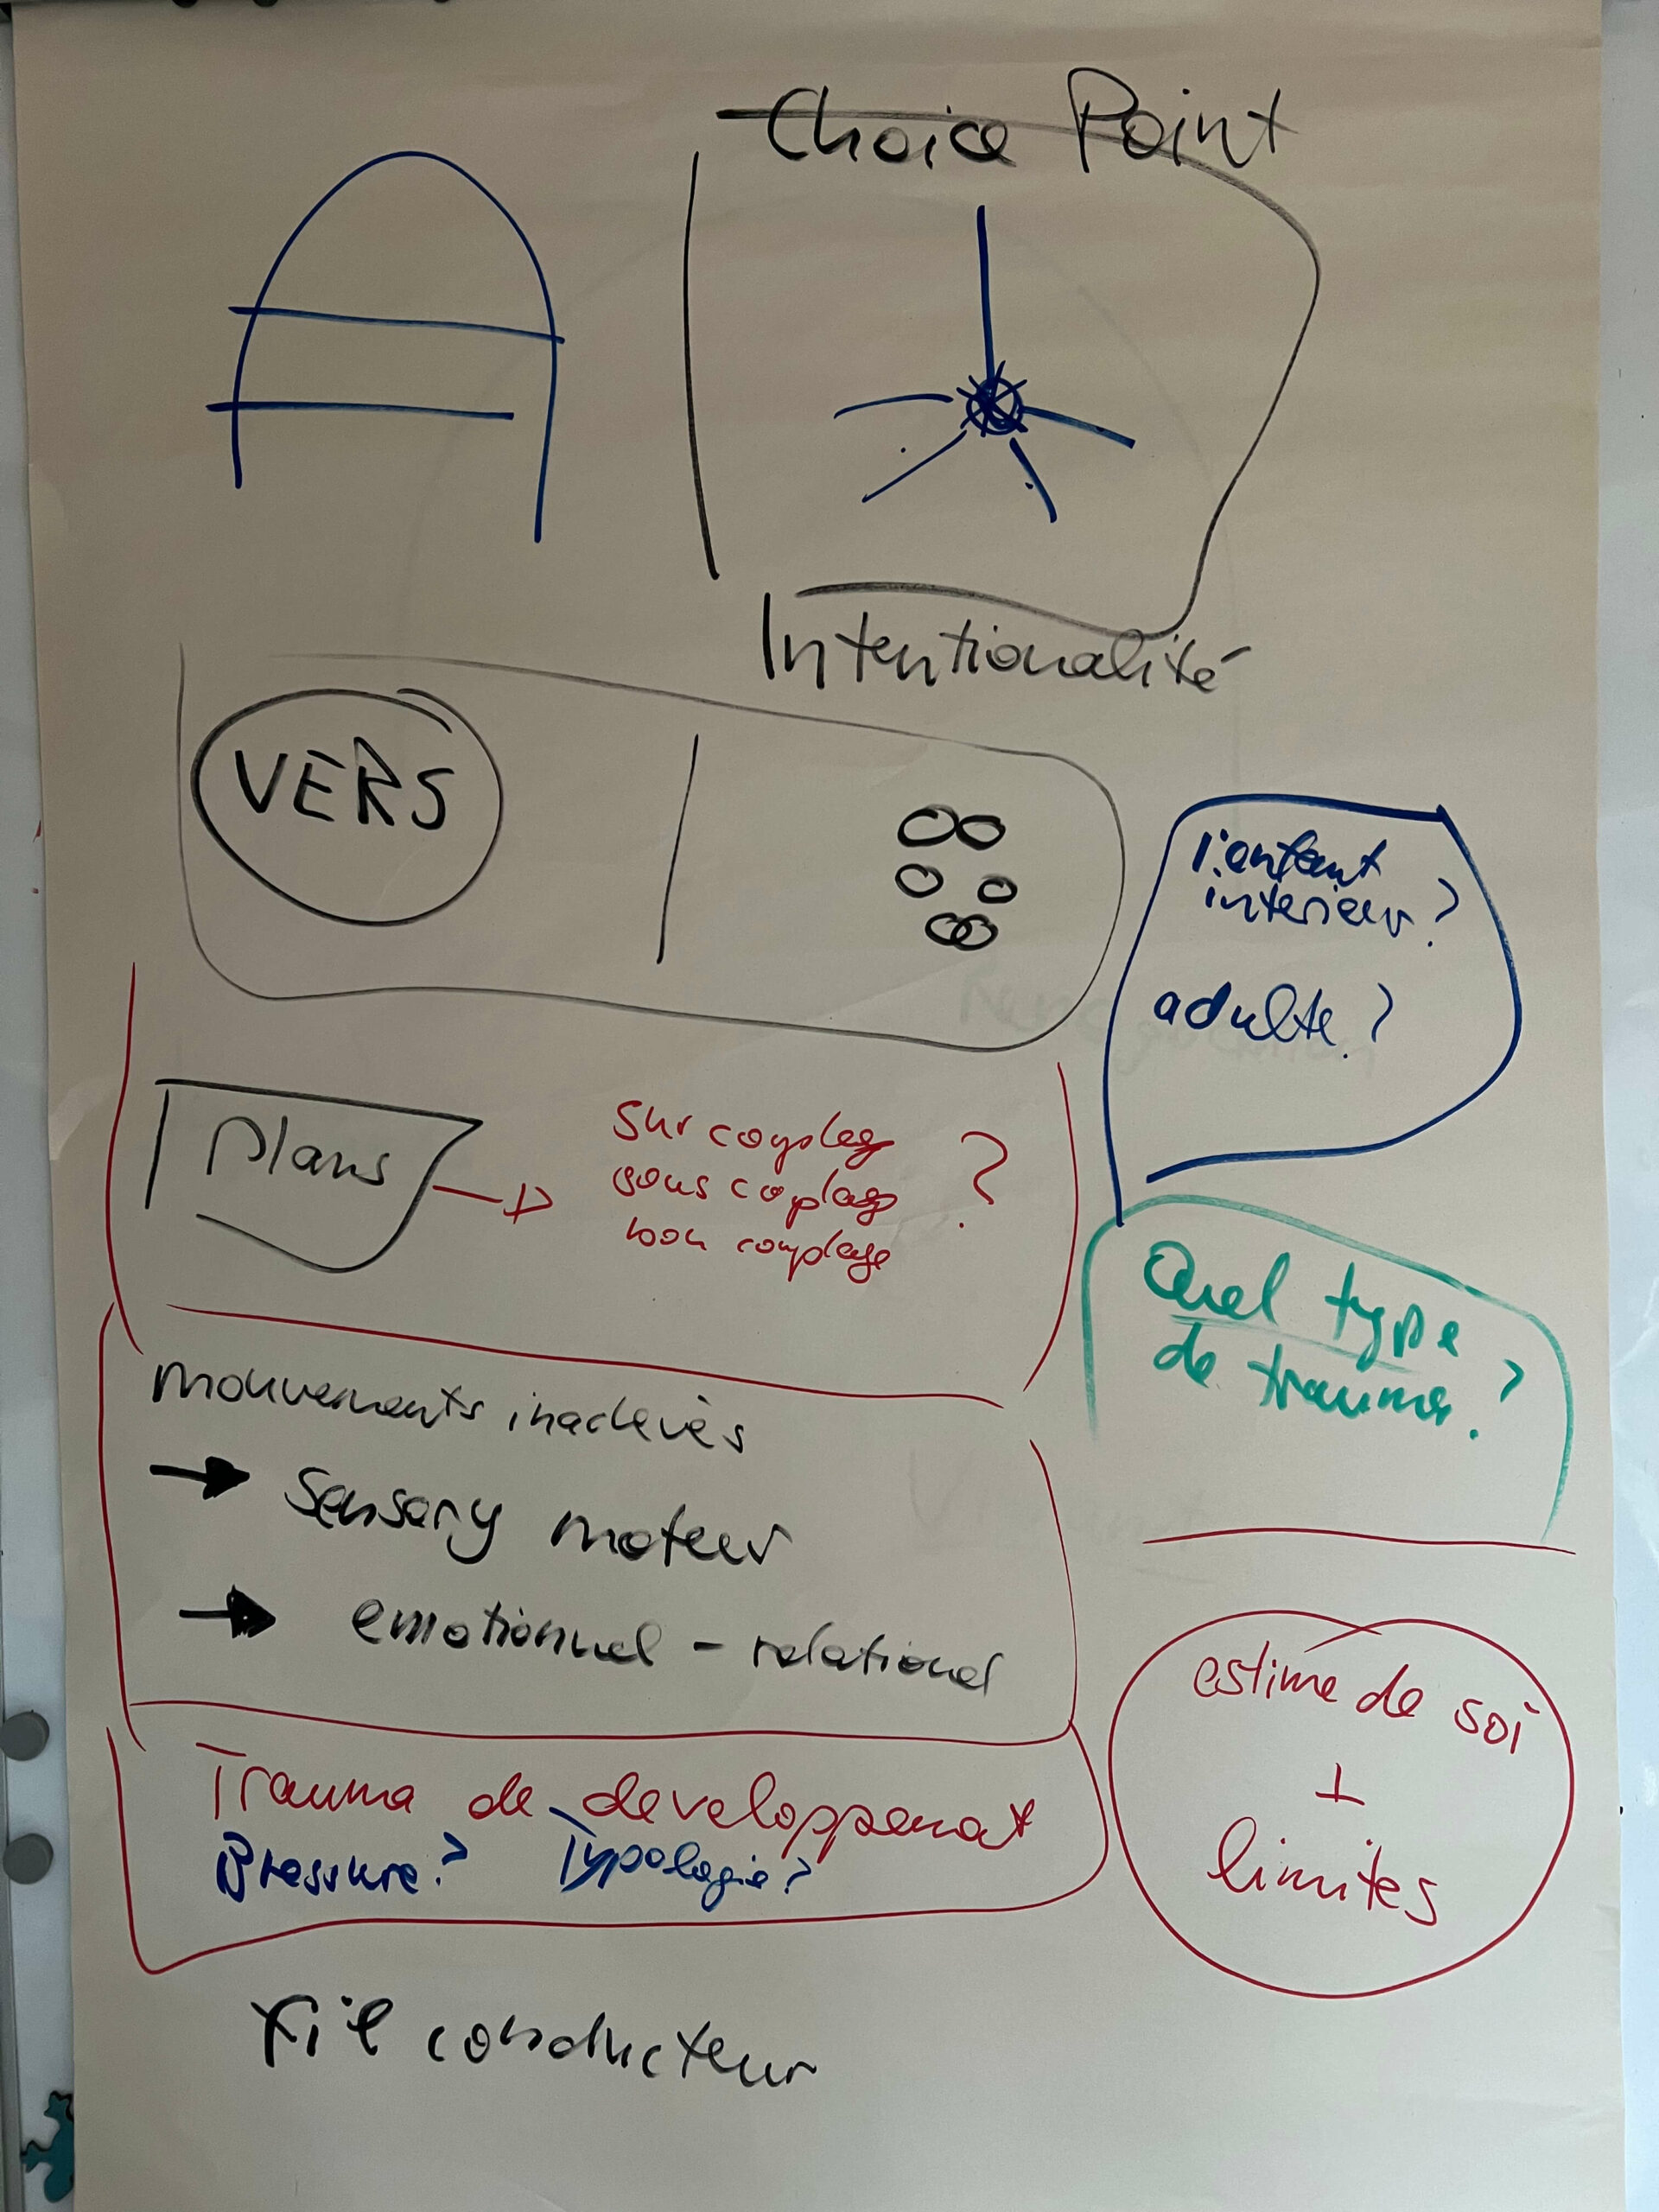 Choice Point
Intentionalité
VERS
l'enfant
interieur?
adulte?
Plans
sur couplag
sous couplag
non couplage
?
Quel type
de trauma?
mouvements inachevés
Sensory moteur
emotionnel - relationel
estime de soi
limites
Trauma de developpement
Typologie?
Fil conducteur